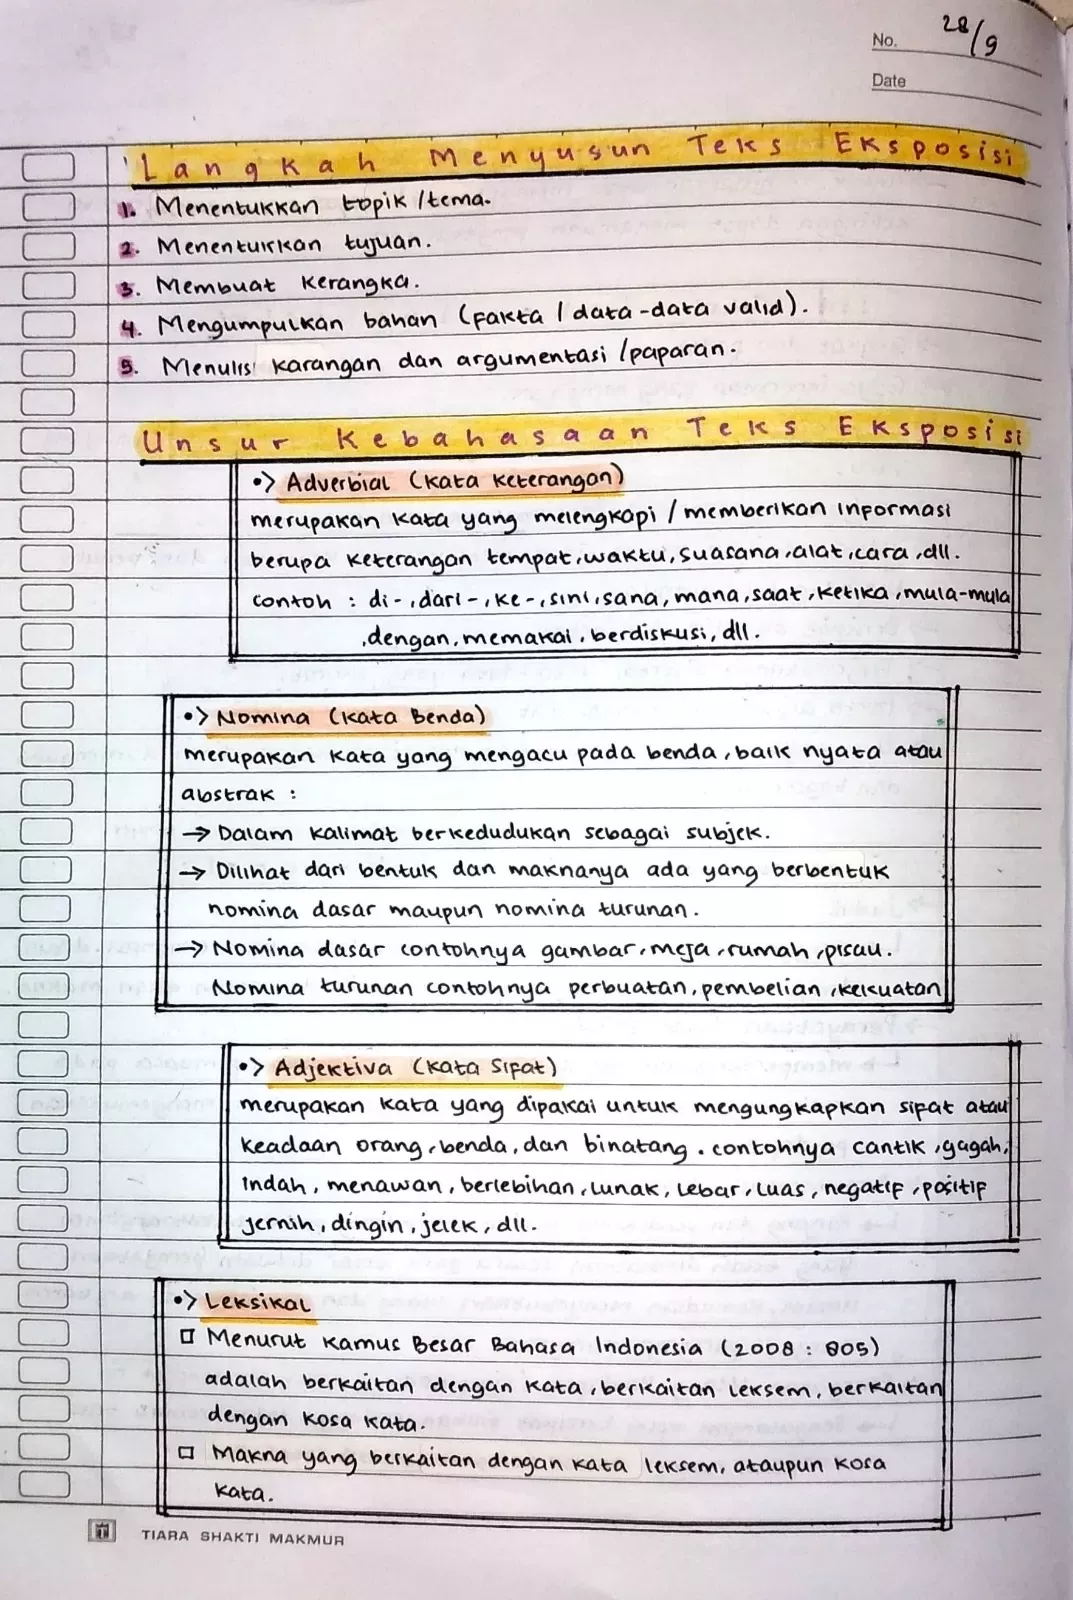 No. 28/9
Date
Langkah Menyusun Teks Eksposisi
1. Menentukkan topik/tema.
2. Menentukkan tujuan.
3. Membuat kerangka.
4. Mengumpulkan bahan (fakta / data-data valid).
5. Menulis karangan dan argumentasi /paparan.
Unsur Kebahasaan Teks Eksposisi
•> Adverbial (kata keterangan)
merupakan kata yang melengkapi / memberikan informasi
berupa keterangan tempat, waktu, suasana, alat, cara, dll.
contoh : di-, dari-, ke-, sini, sana, mana, saat, ketika, mula-mula
, dengan, memakai, berdiskusi, dll.
•> Nomina (kata Benda)
merupakan kata yang mengacu pada benda, baik nyata atau
abstrak :
→ Dalam kalimat berkedudukan sebagai subjek.
→ Dilihat dari bentuk dan maknanya ada yang berbentuk
nomina dasar maupun nomina turunan.
→ Nomina dasar contohnya gambar, meja, rumah, pisau.
Nomina turunan contohnya perbuatan, pembelian, kekuatan
•> Adjektiva (kata sifat)
merupakan kata yang dipakai untuk mengungkapkan sifat atau
keadaan orang, benda, dan binatang. contohnya cantik, gagah,
indah, menawan, berlebihan, lunak, lebar, luas, negatif, positif
jernih, dingin, jelek, dll.
•> Leksikal
□ Menurut Kamus Besar Bahasa Indonesia (2008 : 805)
adalah berkaitan dengan kata, berkaitan leksem, berkaitan
dengan kosa kata.
□ Makna yang berkaitan dengan kata leksem, ataupun kosa
kata.
TIARA SHAKTI MAKMUR